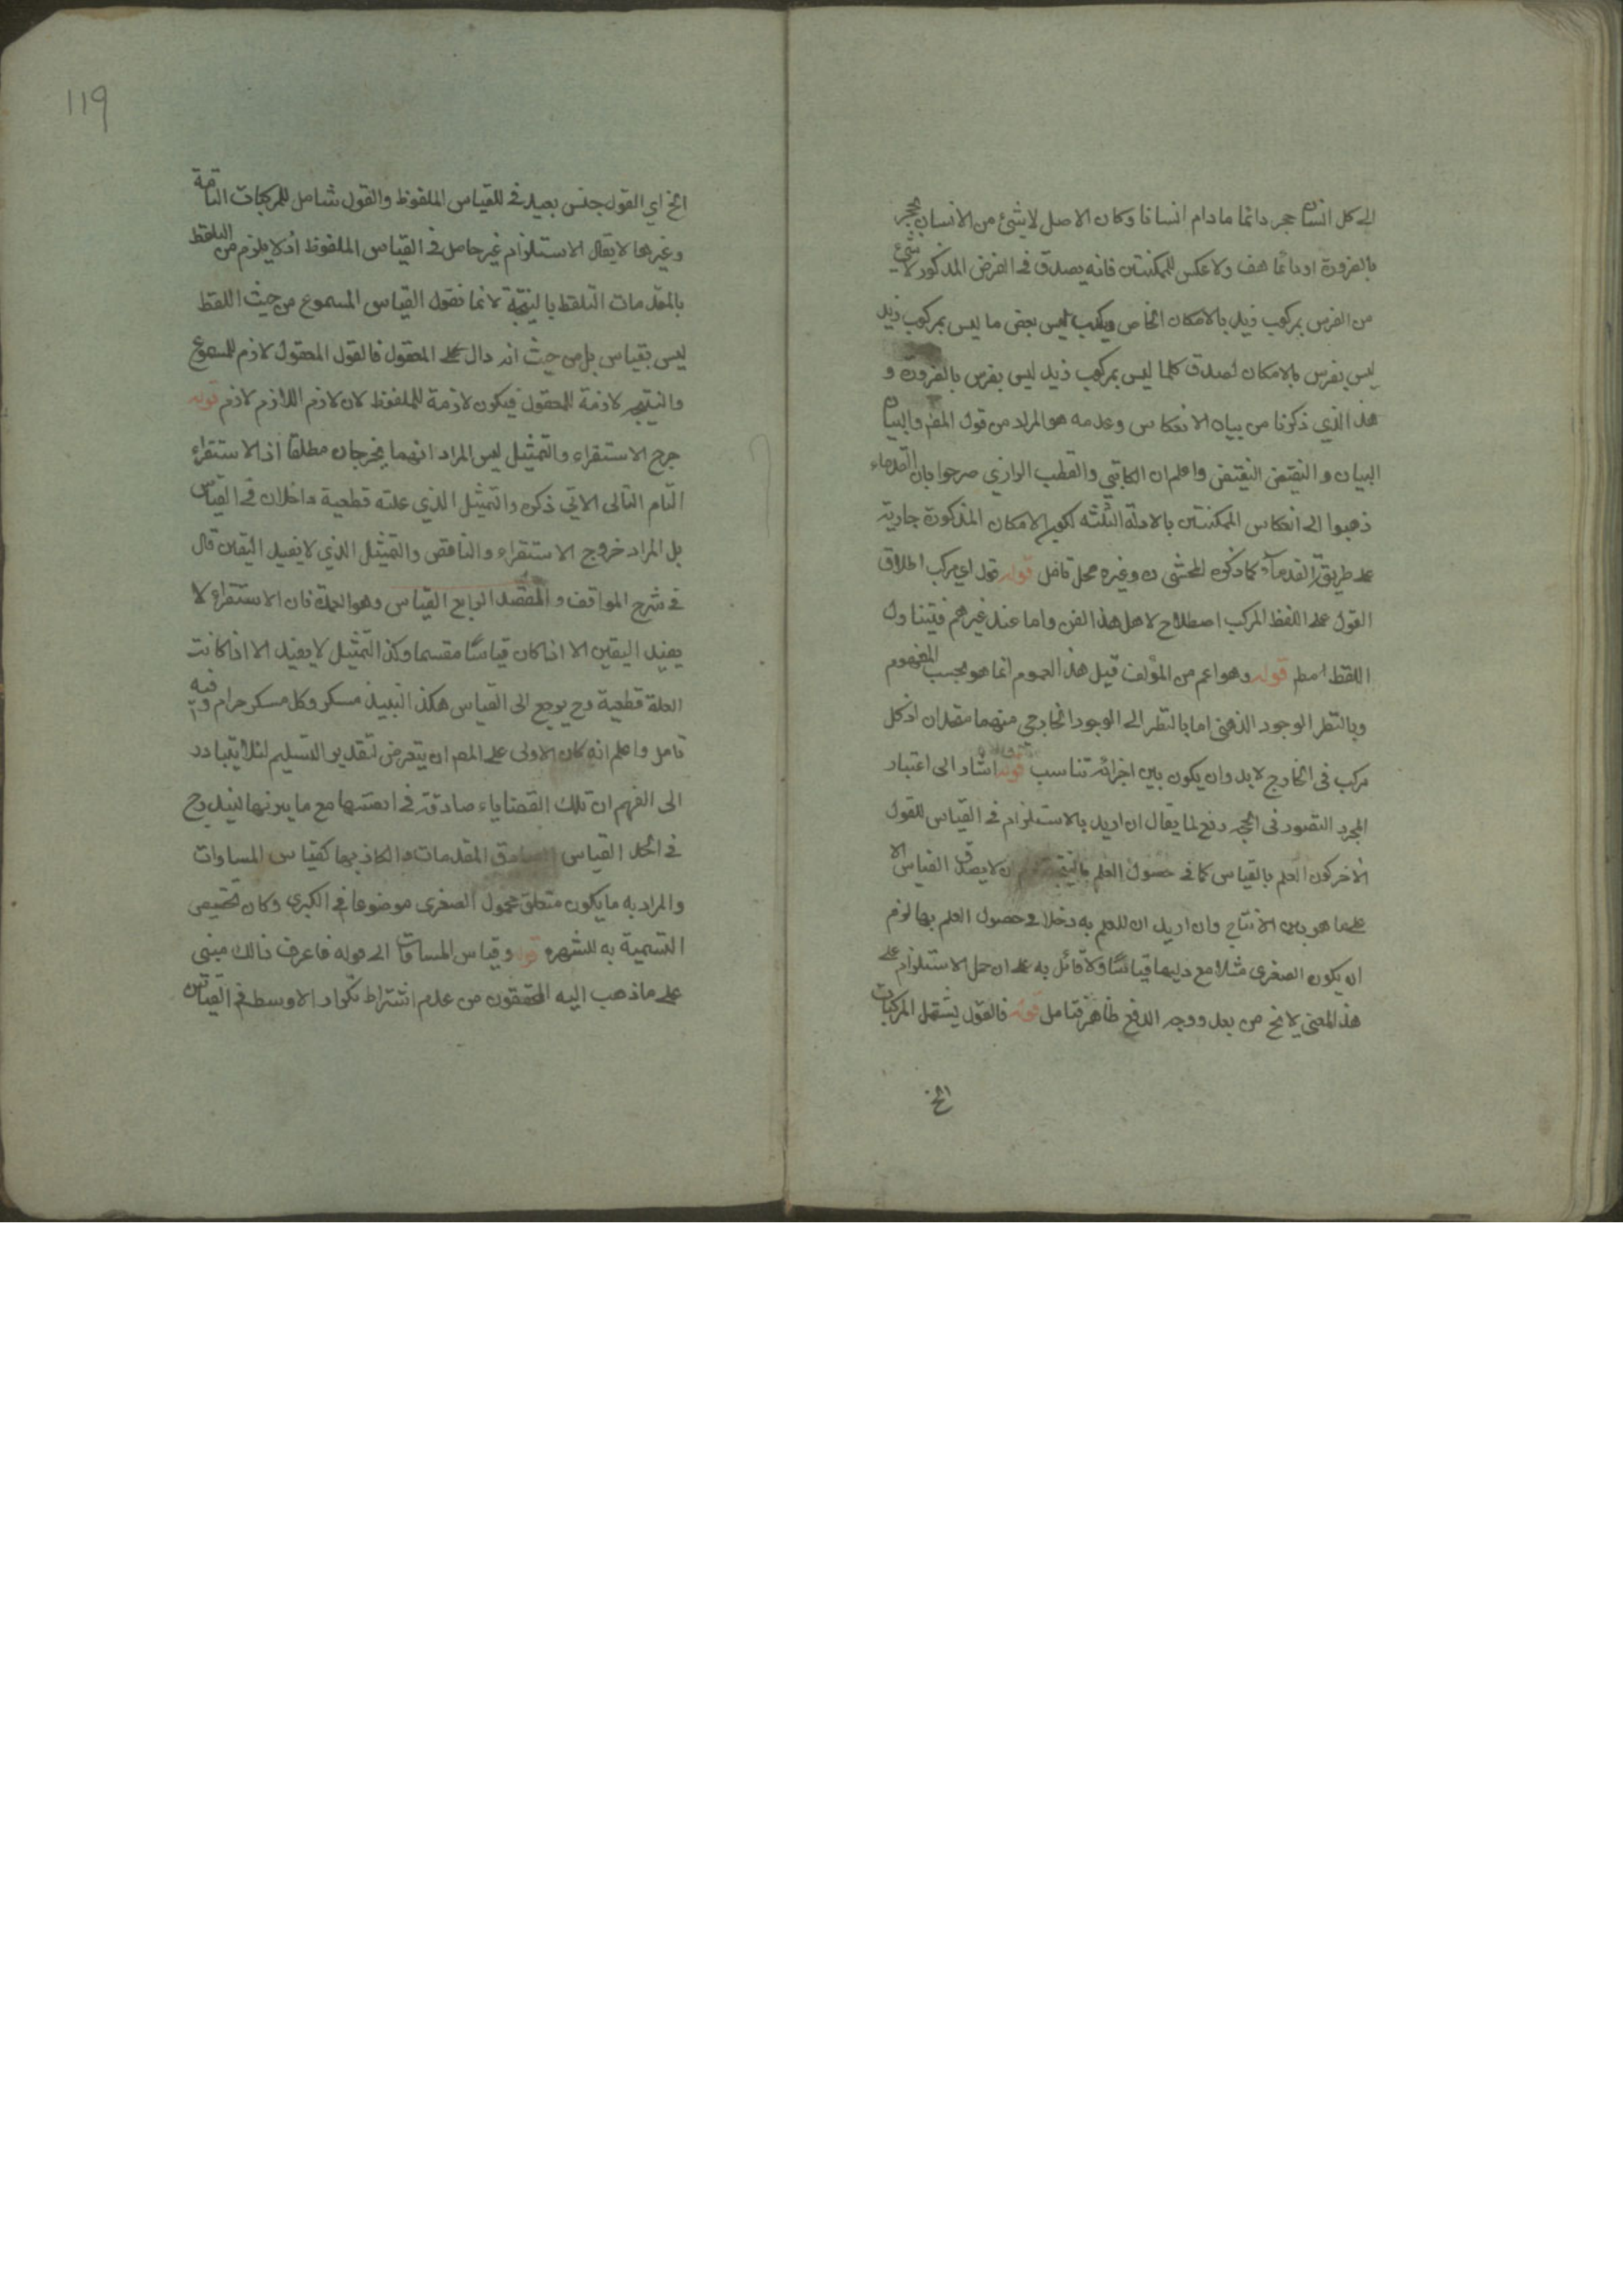 الى كل انسان حجر دائما مادام انسانا وكان الاصل لا شئ من الانسان بحجر
بالضرورة او دائما هف ولا عكس للممكنتين فانه يصدق في الفرض المذكور لا شئ
من الفرس بمركوب زيد بالامكان الخاص ويكذب ليس بعض ما ليس بمركوب زيد
ليس بفرس بالامكان لصدق كلما ليس بمركوب زيد ليس بفرس بالضرورة و
هذا الذي ذكرنا من بيان الانعكاس وعدمه هو المراد من قول المظ والبيان
البيان والنقيض النقيض واعلم ان الكاتبي والقطب الرازي صرحوا بان القدماء
ذهبوا الى انعكاس الممكنتين بالادلة الثلثة لكون الامكان المذكورة جارية
على طريق القدماء كما ذكره المحشي وغيره محل تامل قوله قول اي مركب اطلاق
القول على اللفظ المركب اصطلاح لاهل هذا الفن واما عند غيرهم فيتناول
اللفظ مط قوله وهو اعم من المؤلف قيل هذا العموم انما هو بحسب المفهوم
وبالنظر الوجود الذهني اما بالنظر الى الوجود الخارجي منهما متحدان اذ كل
مركب في الخارج لابد وان يكون بين اجزائه تناسب قوله اشار الى اعتبار
المجرد التصور في الحجر دفع لما يقال ان اريد بالاستلزام في القياس للقول
الآخر كون العلم بالقياس كما في حصول العلم بالنتيجة ان لا يصدق القياس الا
على ما هو بين الانتاج وان اريد ان للعلم به دخلا في حصول العلم بها لزم
ان يكون الصغرى مثلا مع دليلها قياسا ولا قائل به على ان حمل الاستلزام على
هذا المعنى لا يخ من بعد ووجه الدفع ظاهر فتامل قوله فالقول يشتمل المركبات
الخ
119
الخ اي القول جنس بعيد في للقياس الملفوظ والقول شامل للمركبات التامة
وغيرها لا يقال الاستلزام غير حاصل في القياس الملفوظ اذ لا يلزم من التلفظ
بالمقدمات التلفظ بالنتيجة لانما نقول القياس المسموع من حيث اللفظ
ليس بقياس بل من حيث انه دال على المعقول فالقول المعقول لازم للمسموع
والنتيجه لازمة للمعقول فيكون لازمة للملفوظ لان لازم اللازم لازم قوله
خرج الاستقراء والتمثيل ليس المراد انهما يخرجان مطلقا اذ الاستقراء
التام التالى الاتي ذكره والتمثيل الذي علته قطعية داخلان في القياس
بل المراد خروج الاستقراء والناقص والتمثيل الذي لا يفيد اليقين قال
في شرح المواقف والمقصد الرابع القياس وهو العمدة فان الاستقراء لا
يفيد اليقين الا اذا كان قياسا مقسما وكذا التمثيل لا يفيد الا اذا كانت
العلة قطعية وح يرجع الى القياس هكذا النبيذ مسكر وكل مسكر حرام وفيه
تامل واعلم انه كان الاولى على المص ان يتعرض لتقدير التسليم لئلا يتبادر
الى الفهم ان تلك القضاياء صادقة في انفسها مع ما يرنها ليندرج
في الحد القياس الصادق المقدمات والكاذبها كقياس المساوات
والمراد به ما يكون متعلق محمول الصغرى موضوعا في الكبرى وكان تخصيص
التسمية به للشهره قوله وقياس المساقات الى قوله فاعرف ذالك مبنى
على ما ذهب اليه المحققون من عدم اشتراط تكرار الاوسط في القياس